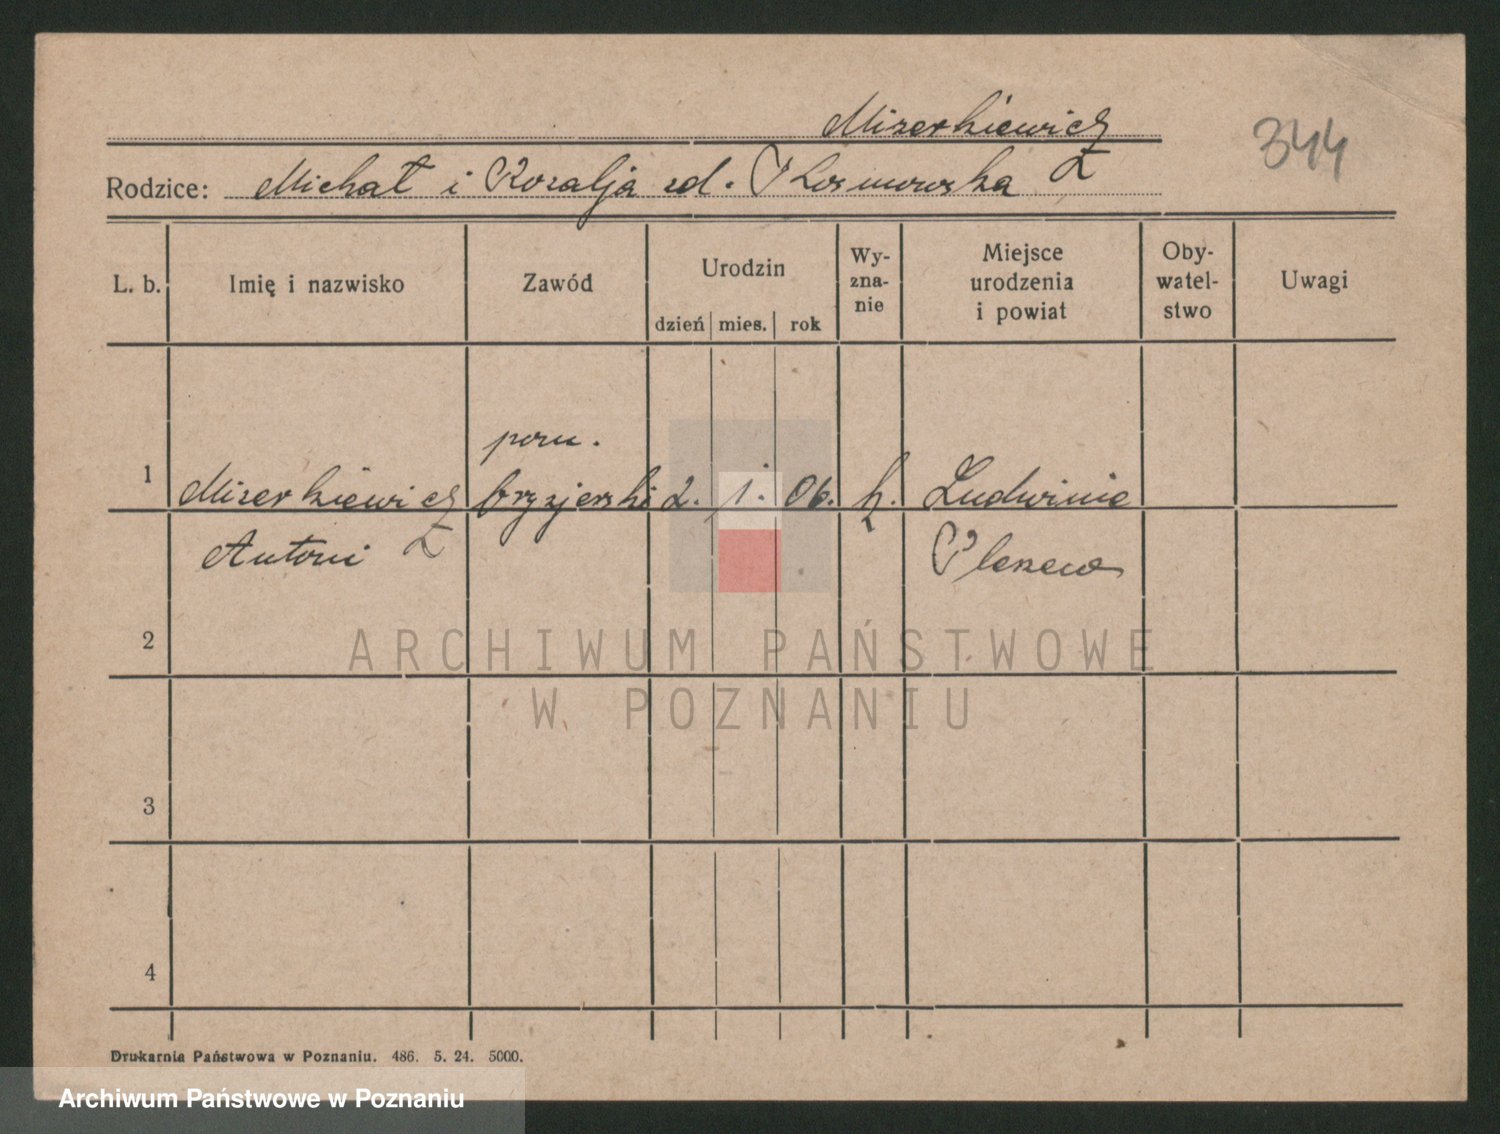 Mizerkiewicz
344
Rodzice: Michał i Rozalja zd. Kosmowska
L. b.
Imię i nazwisko
Zawód
Urodzin
dzień mies. rok
Wy-
zna-
nie
Miejsce
urodzenia
i powiat
Oby-
watel-
stwo
Uwagi
1
Mizerkiewicz
Antoni
pom.
fryzjerski
2. 1. 06.
k.
Ludwinie
Pleszew
2
3
4
ARCHIWUM PAŃSTWOWE
W POZNANIU
Drukarnia Państwowa w Poznaniu. 486. 5. 24. 5000.
Archiwum Państwowe w Poznaniu